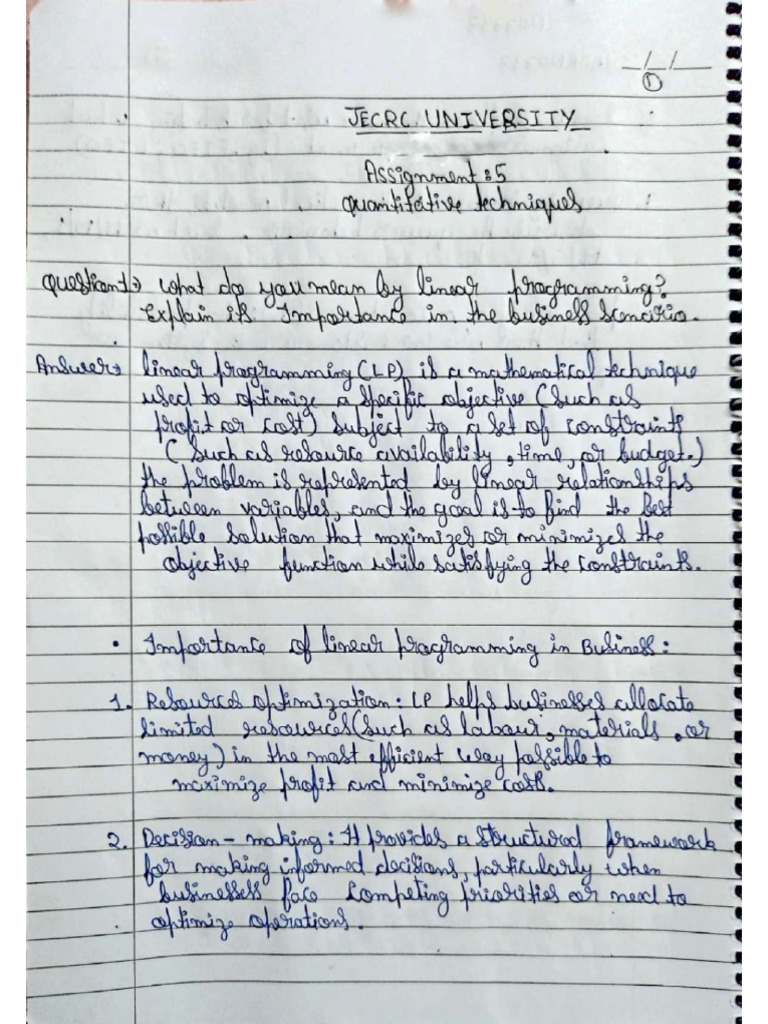 _/_/_
①
JECRC UNIVERSITY
Assignment: 5
Quantitative techniques
Question1→ What do you mean by linear programming?
Explain its Importance in the business scenario.
Answer→ linear programming (LP) is a mathematical technique
used to optimize a specific objective (such as
profit or cost) subject to a set of constraints
(such as resource availability, time, or budget.)
the problem is represented by linear relationships
between variables, and the goal is to find the best
possible solution that maximizes or minimizes the
objective function while satisfying the constraints.
• Importance of linear programming in Business:
1. Resources optimization: LP helps businesses allocate
limited resources (such as labour, materials, or
money) in the most efficient way possible to
maximize profit and minimize costs.
2. Decision-making: It provides a structured framework
for making informed decisions, particularly when
businesses face competing priorities or need to
optimize operations.